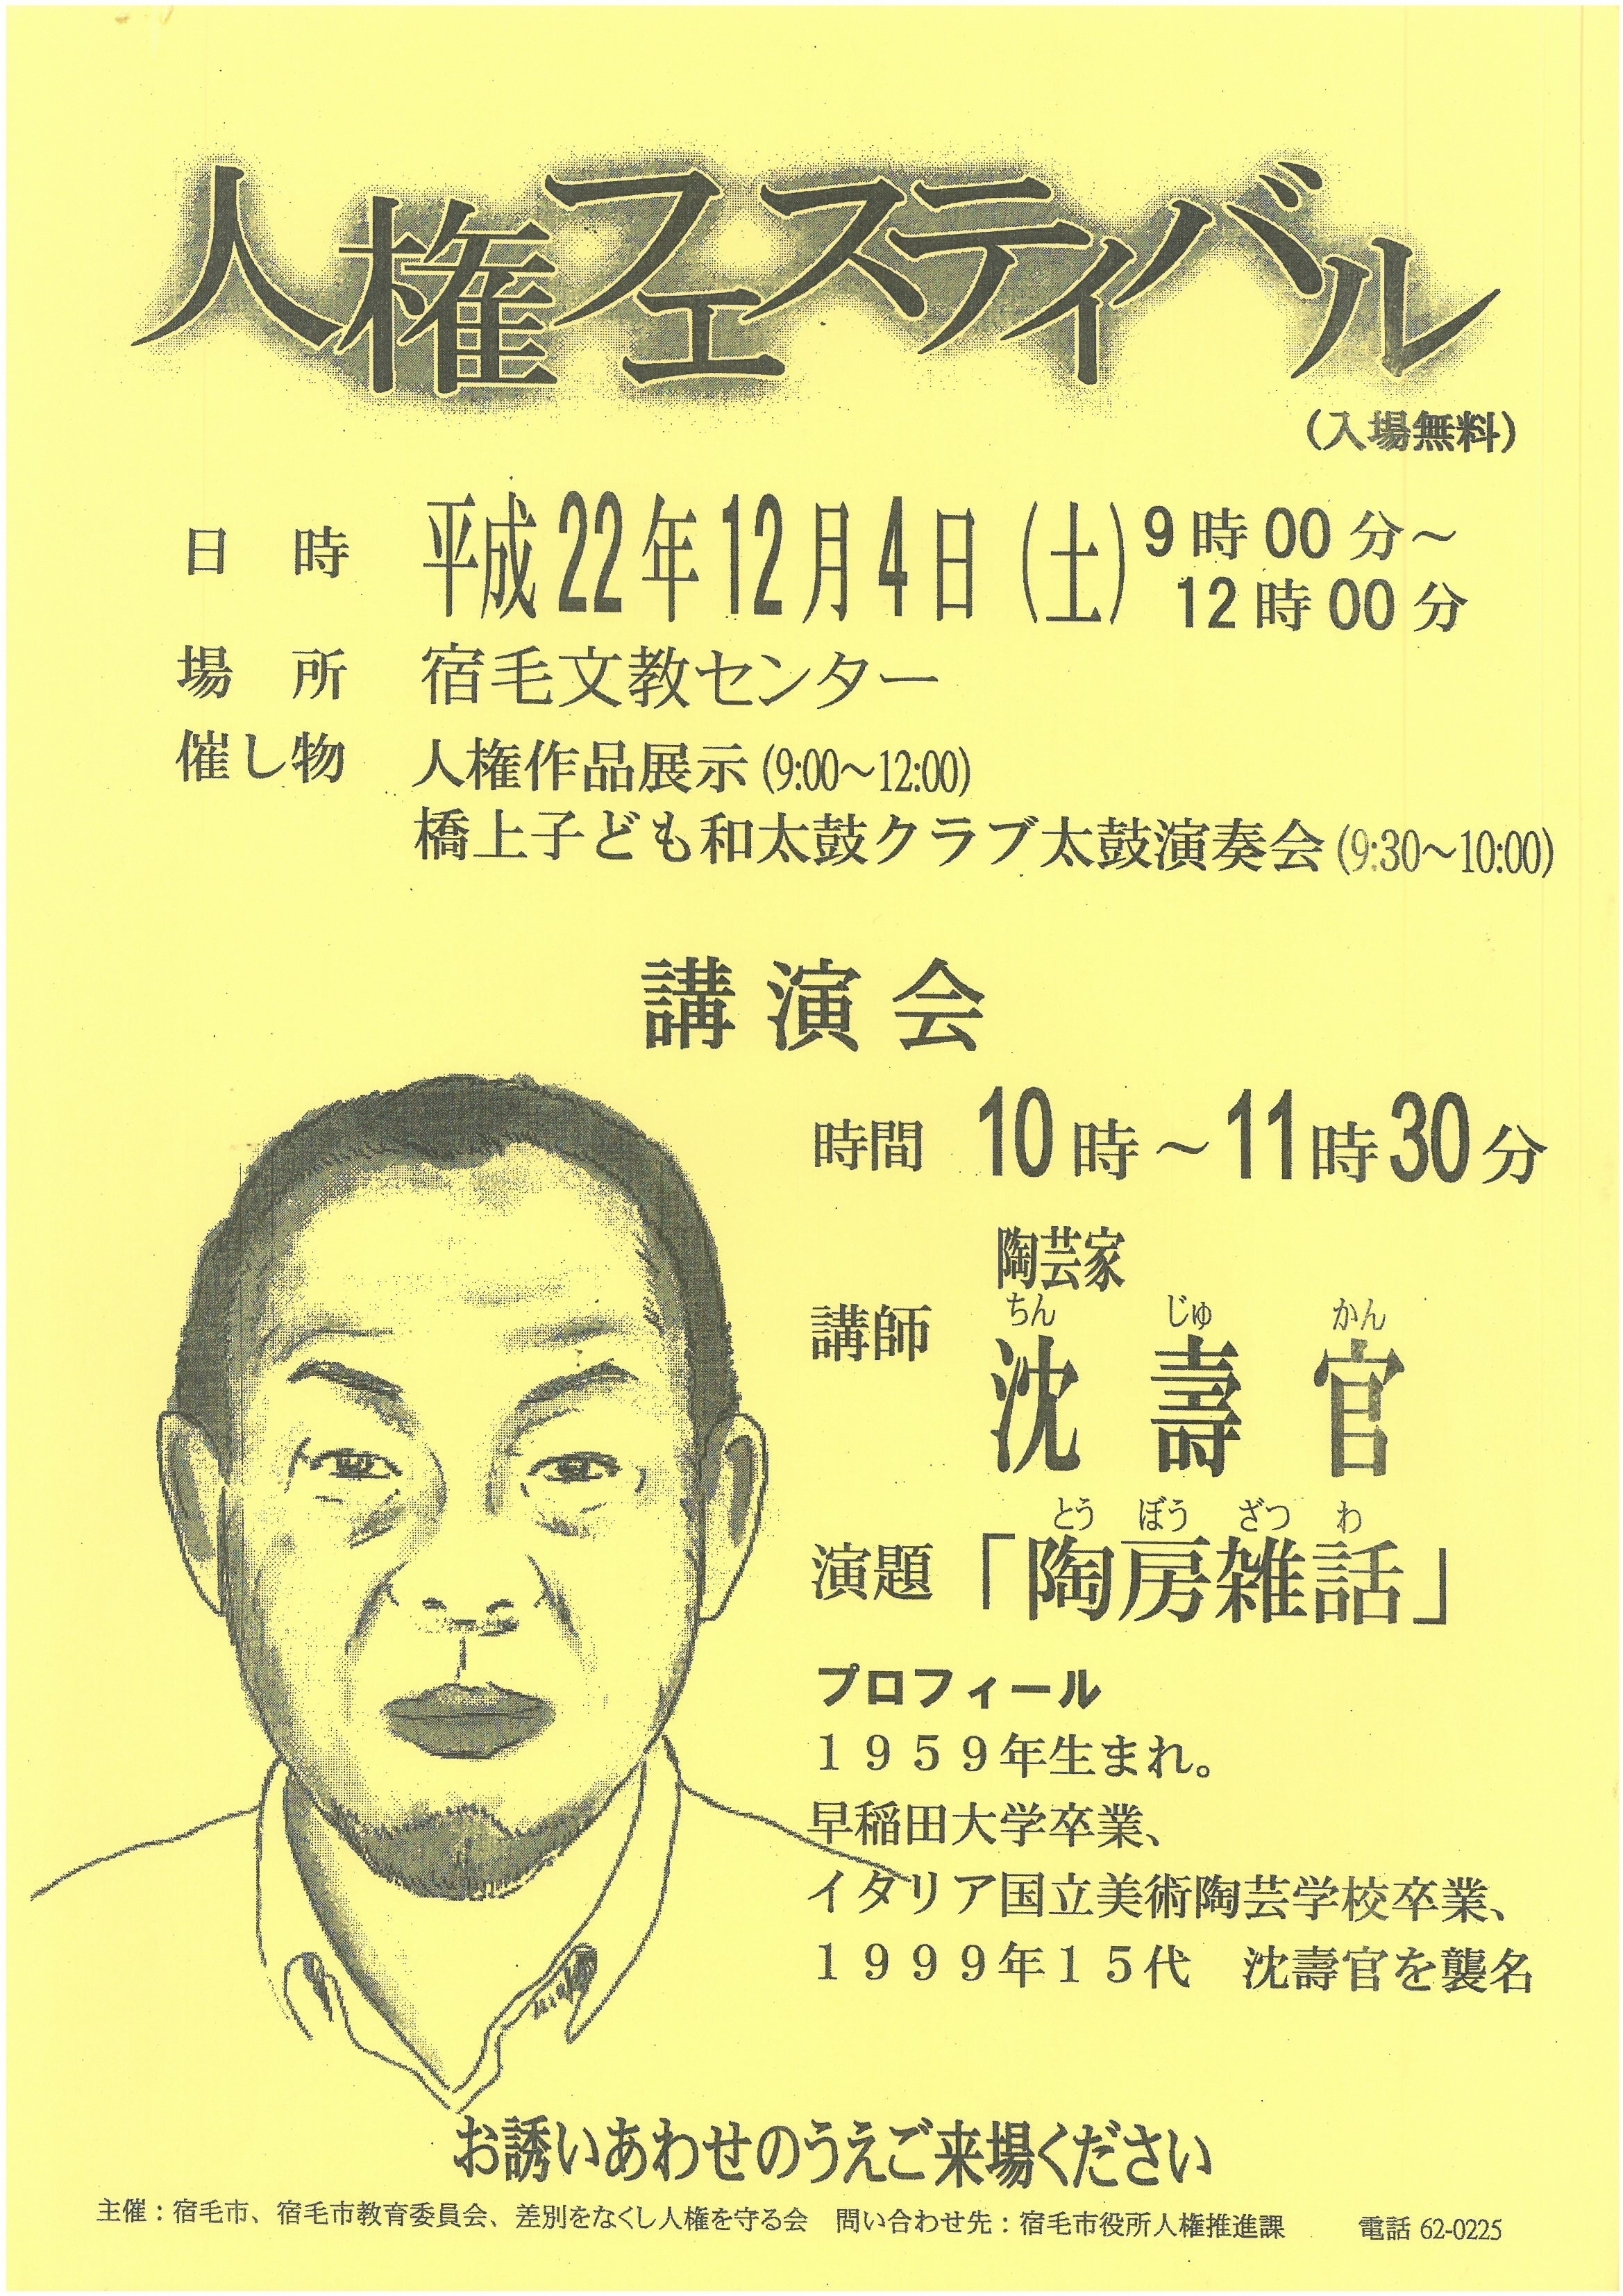 人権フェスティバル
(入場無料)
日 時 平成22年12月4日(土) 9時00分～
12時00分
場 所 宿毛文教センター
催し物 人権作品展示(9:00～12:00)
橋上子ども和太鼓クラブ太鼓演奏会(9:30～10:00)
講演会
時間 10時～11時30分
陶芸家
ちん じゅ かん
講師 沈 壽 官
とう ぼう ざつ わ
演題 「陶房雑話」
プロフィール
１９５９年生まれ。
早稲田大学卒業、
イタリア国立美術陶芸学校卒業、
１９９９年１５代 沈壽官を襲名
お誘いあわせのうえご来場ください
主催：宿毛市、宿毛市教育委員会、差別をなくし人権を守る会 問い合わせ先：宿毛市役所人権推進課 電話 62-0225